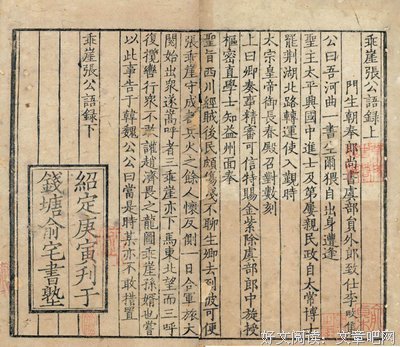 乖崖張公語錄上
門生朝奉郎尚書虞部員外郎致仕李畋集
公曰吾河曲一書生爾猥自出身遭逢
聖主太平興國中進士及第屢親民政自太常博
罷荊湖北路轉運使入覲時
太宗皇帝御長春殿召對數刻
上曰卿奏事精審可信特賜金紫除虞部郎中旋授
樞密直學士知益州面奉
聖旨西川經賊後民頗傷殘不聊生卿去到彼可便
張乖崖守成都兵火之餘人懷反側一日合軍旅大
閱始出衆遂嵩呼者三乖崖亦下馬東北望而三呼
復攬轡行衆不敢讙趙濟畏之龍圖乖崖孫婿也嘗
以此事告于韓魏公公曰當是時某亦不敢措置
乖崖張公語錄下
紹定庚寅刋于
錢塘俞宅書塾
好文阅读：文章吧网